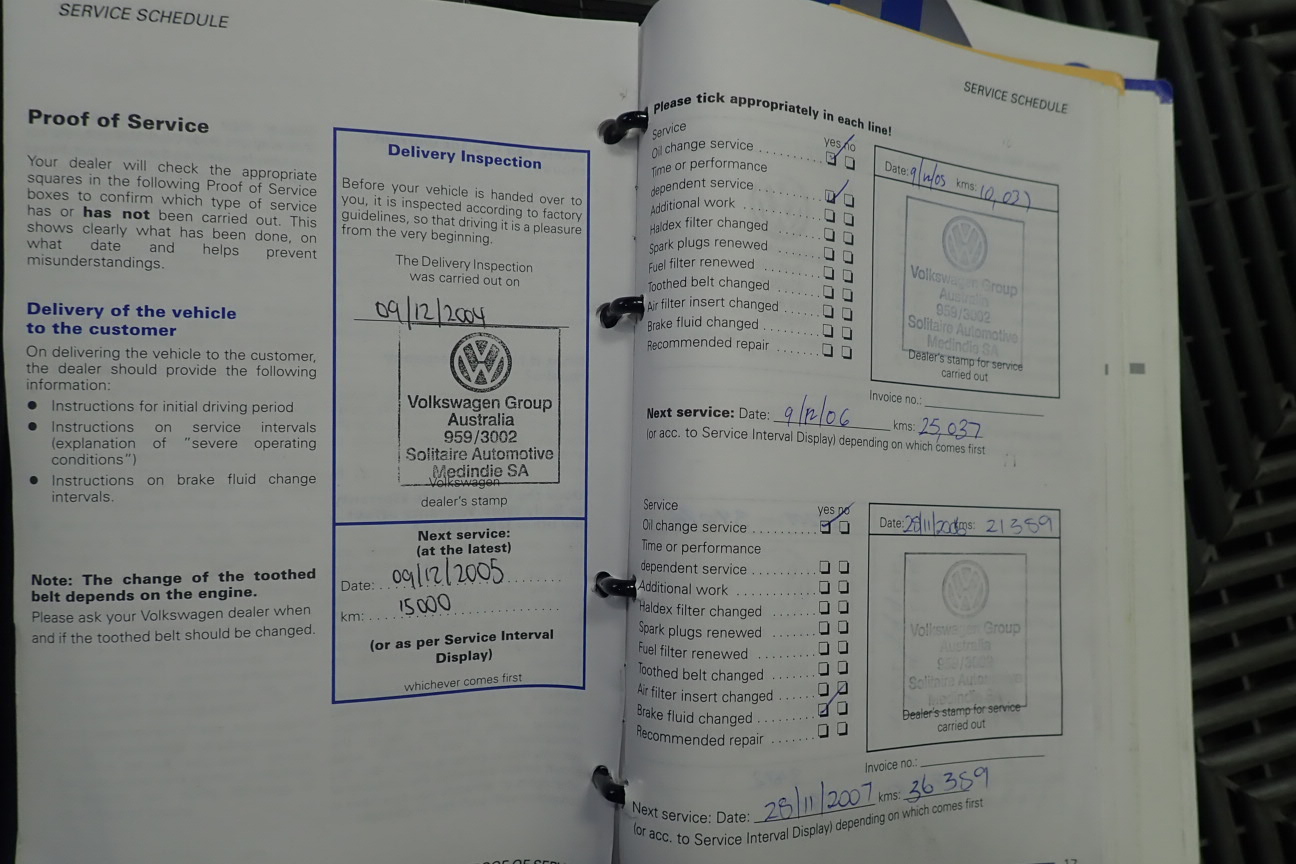 SERVICE SCHEDULE
Proof of Service
Your dealer will check the appropriate
squares in the following Proof of Service
boxes to confirm which type of service
has or has not been carried out. This
shows clearly what has been done, on
what date and helps prevent
misunderstandings.
Delivery of the vehicle
to the customer
On delivering the vehicle to the customer,
the dealer should provide the following
information:
● Instructions for initial driving period
● Instructions on service intervals
(explanation of "severe operating
conditions")
● Instructions on brake fluid change
intervals.
Note: The change of the toothed
belt depends on the engine.
Please ask your Volkswagen dealer when
and if the toothed belt should be changed.
Delivery Inspection
Before your vehicle is handed over to
you, it is inspected according to factory
guidelines, so that driving it is a pleasure
from the very beginning.
The Delivery Inspection
was carried out on
09/12/2004
Volkswagen Group
Australia
959/3002
Solitaire Automotive
Medindie SA
Volkswagen
dealer's stamp
Next service:
(at the latest)
Date: 09/12/2005
km: 15000
(or as per Service Interval
Display)
whichever comes first
SERVICE SCHEDULE
Please tick appropriately in each line!
Service yes no
Oil change service
Time or performance
dependent service
Additional work
Haldex filter changed
Spark plugs renewed
Fuel filter renewed
Toothed belt changed
Air filter insert changed
Brake fluid changed
Recommended repair
Date: 9/12/05 kms: 10,037
Volkswagen Group
Australia
959/3002
Solitaire Automotive
Medindie SA
Dealer's stamp for service
carried out
Invoice no.:
Next service: Date: 9/12/06 kms: 25,037
(or acc. to Service Interval Display) depending on which comes first
Service yes no
Oil change service
Time or performance
dependent service
Additional work
Haldex filter changed
Spark plugs renewed
Fuel filter renewed
Toothed belt changed
Air filter insert changed
Brake fluid changed
Recommended repair
Date: 28/11/2006 kms: 21389
Volkswagen Group
Australia
Dealer's stamp for service
carried out
Invoice no.:
Next service: Date: 28/11/2007 kms: 36 389
(or acc. to Service Interval Display) depending on which comes first